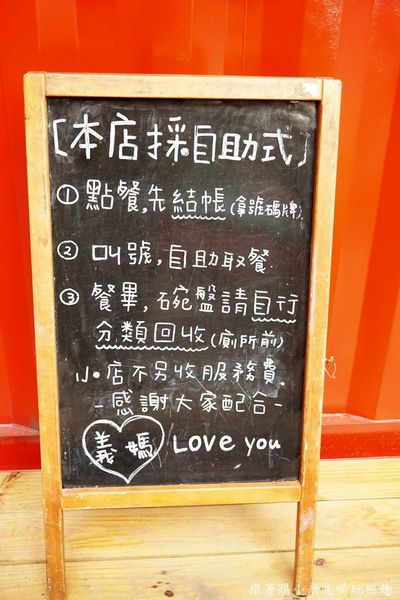 [本店採自助式]
① 點餐,先結帳(拿號碼牌)
② 叫號,自助取餐
③ 餐畢,碗盤請自行
分類回收(廁所前)
小店不另收服務費.
-感謝大家配合-
義媽 Love you
跟著踢小米吃喝玩樂趣